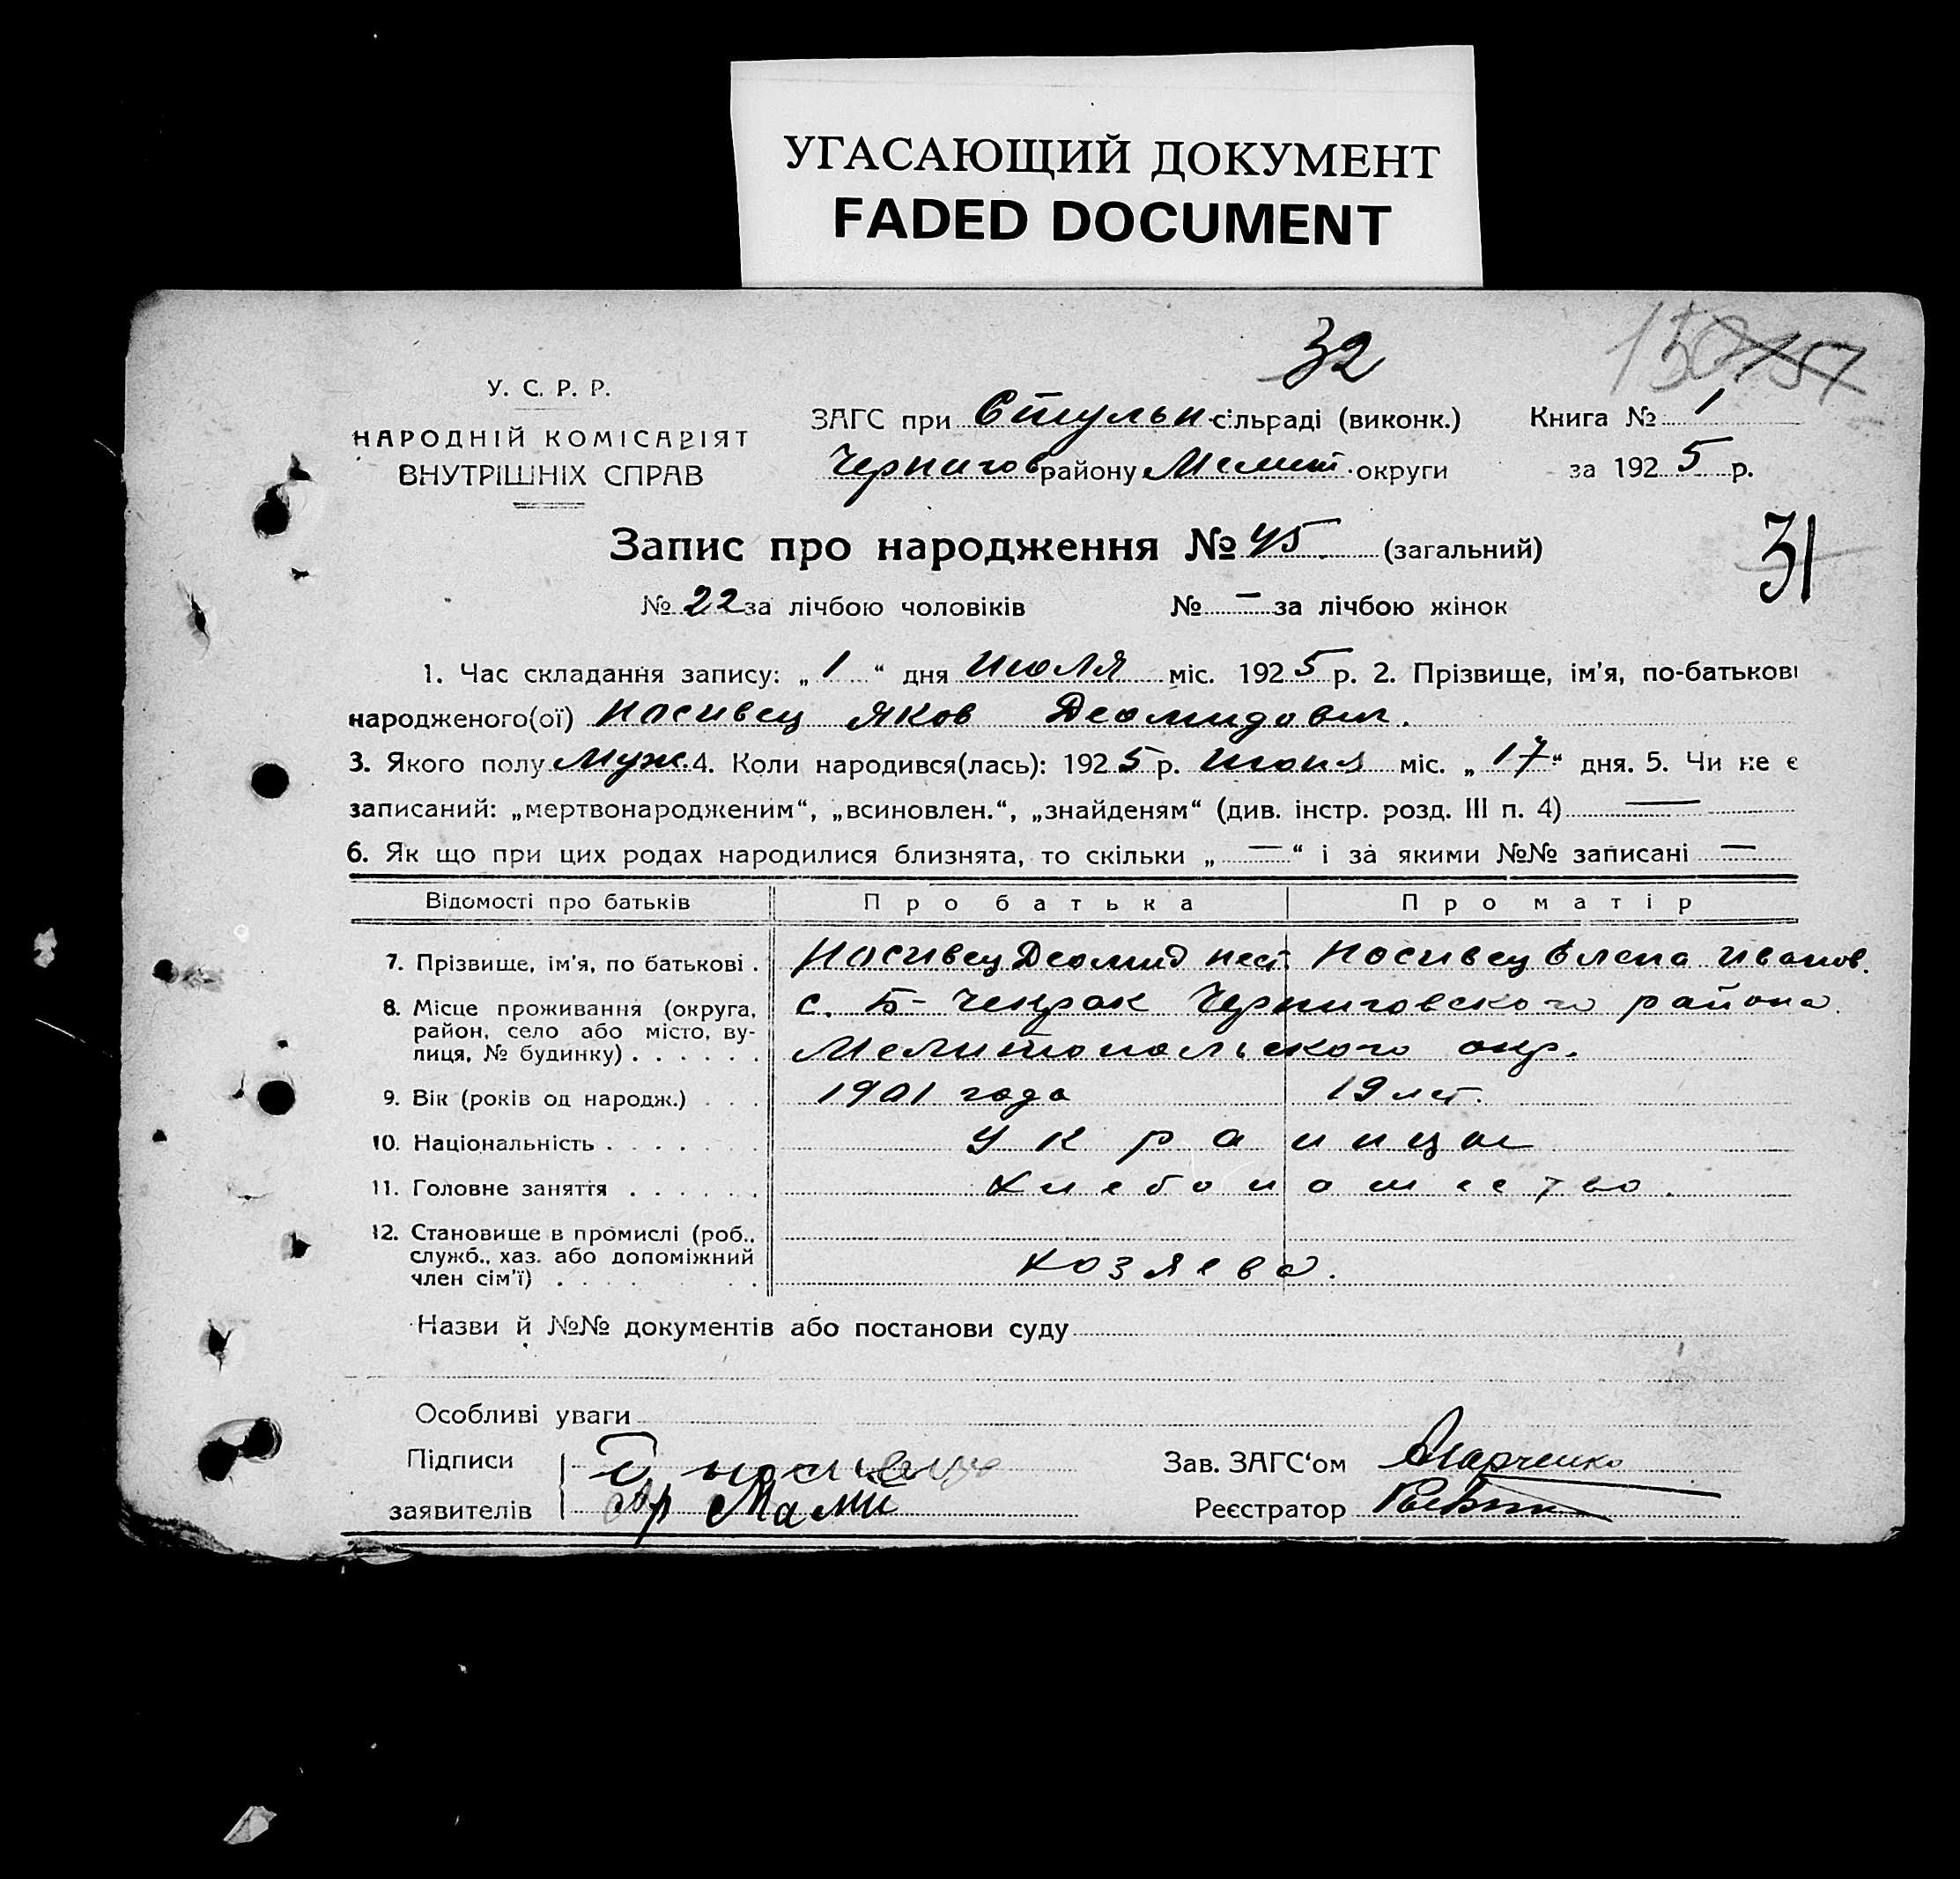 УГАСАЮЩИЙ ДОКУМЕНТ
FADED DOCUMENT
32
150 157
У. С. Р. Р.
НАРОДНІЙ КОМІСАРІЯТ
ВНУТРІШНІХ СПРАВ
ЗАГС при Стульн сільраді (виконк.)
Чернигов району Мелит. округи
Книга № 1
за 1925 р.
31
Запис про народження № 45. (загальний)
№ 22 за лічбою чоловіків № — за лічбою жінок
1. Час складання запису: „1“ дня Июля міс. 1925 р. 2. Прізвище, ім'я, по-батькові
народженого(ої) Носивец Яков Деомидович.
3. Якого полу Муж. 4. Коли народився(лась): 1925 р. Июня міс. „17“ дня. 5. Чи не є
записаний: „мертвонародженим“, „всиновлен.“, „знайденям“ (див. інстр. розд. III п. 4) —
6. Як що при цих родах народилися близнята, то скільки „—“ і за якими №№ записані —
Відомості про батьків Про батька Про матір
7. Прізвище, ім'я, по батькові . Носивец Деомид Нест. Носивец Елена Иванов.
8. Місце проживання (округа, с. Б- Чекрак Черниговского района
район, село або місто, ву-
лиця, № будинку) . . . . . . Мелитопольского окр.
9. Вік (років од народж.) . . . 1901 года 19 лет.
10. Національність . . . . . . . Украинцы
11. Головне заняття . . . . . . Хлебопашество.
12. Становище в промислі (роб.,
служб., хаз. або допоміжний
член сім'ї) . . . . . . . . Хозяева.
Назви й №№ документів або постанови суду
Особливі уваги
Підписи
заявителів
Зав. ЗАГС'ом Марченко
Реєстратор